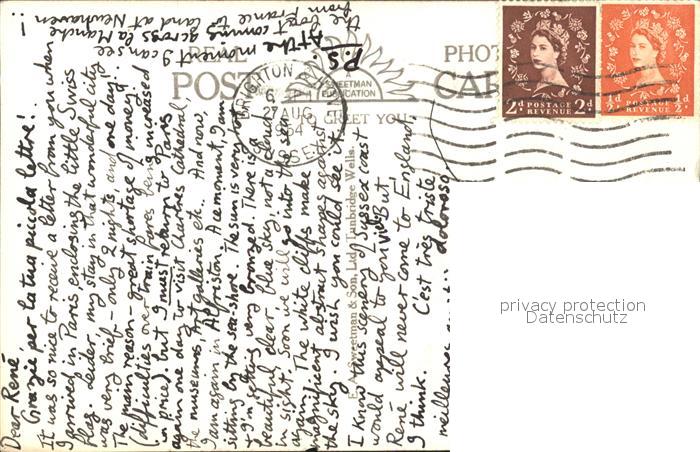 Dear René
Grazie per la tua piccola lettre!
It was so nice to receive a letter from you when
I arrived in Paris enclosing the little Swiss
flag. Leider, my stay in that wonderful city
was very brief - only 2 nights and one day!
The main reason - great shortage of money
(difficulties over train fares being increased
in price). but I must return to Paris
again one day to visit Chartres Cathedral,
the museums, art galleries etc.. And now,
I am again in Alfriston. A ce moment, I am
sitting by the sea-shore. The sun is very hot
& I'm getting very bronzed. There is a
beautiful clear, blue sky: not a cloud is
in sight. Soon we will go into the sea
again. The white cliffs make
magnificent abstract shapes against
the sky. I wish you could see it
I know this scenery / Sussex coast
would appeal to you viel. But
René will never come to England,
I think. C'est très triste,
doloroso
meilleures
P.S. At the moment I can see
the boat coming across la Manche
from France to land at Newhaven
!!
REAL PHOTO
POST CARD
A
SWEETMAN
PUBLICATION
GREET YOU
E. A. Sweetman & Son, Ltd., Tunbridge Wells.
BRIGHTON
27 AUG
1954
SUSSEX
2d POSTAGE REVENUE 2d
½d POSTAGE REVENUE ½d
privacy protection
Datenschutz